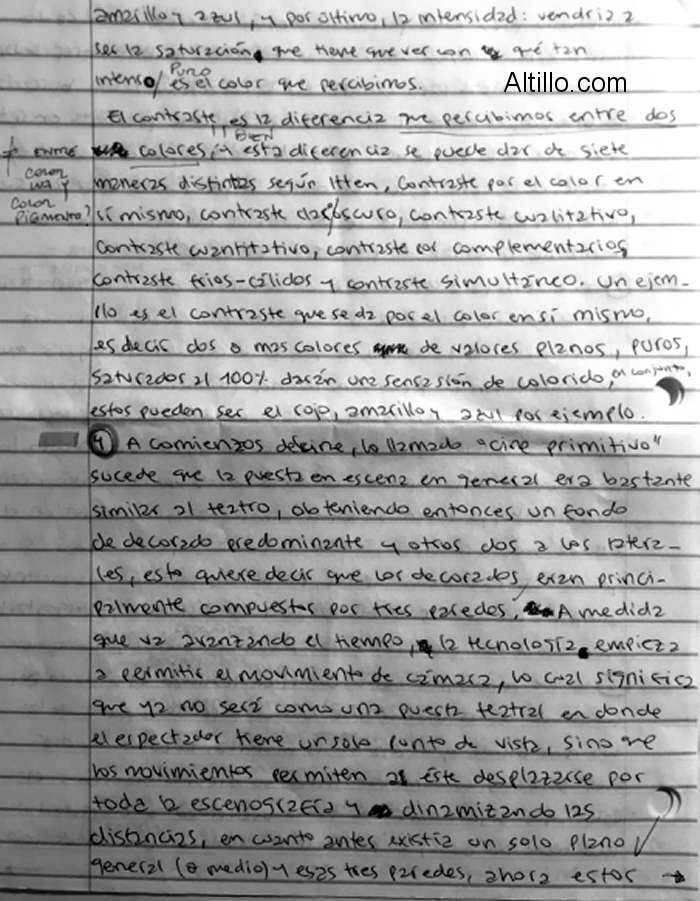 amarillo y azul, y por último, la intensidad: vendria a
ser la saturación, que tiene que ver con qué tan
intenso/puro es el color que percibimos.
Altillo.com
El contraste es la diferencia que percibimos entre dos
BIEN
colores, y esta diferencia se puede dar de siete
≠ ENTRE
COLOR
LUZ Y
COLOR
PIGMENTO?
maneras distintas según Itten, contraste por el color en
sí mismo, contraste claroscuro, contraste cualitativo,
contraste cuantitativo, contraste por complementarios,
contraste fríos-cálidos y contraste simultáneo. Un ejem-
plo es el contraste que se da por el color en sí mismo,
es decir dos o mas colores de valores planos, puros,
saturados al 100% darán una sensasión de colorido, en conjunto,
estos pueden ser el rojo, amarillo y azul por ejemplo.
4 A comienzos del cine, lo llamado "cine primitivo"
sucede que la puesta en escena en general era bastante
similar al teatro, obteniendo entonces un fondo
de decorado predominante y otros dos a los latera-
les, esto quiere decir que los decorados, eran princi-
palmente compuestos por tres paredes. A medida
que va avanzando el tiempo, la tecnología empieza
a permitir el movimiento de cámara, lo cual significa
que ya no será como una puesta teatral en donde
el espectador tiene un solo punto de vista, sino que
los movimientos permiten a éste desplazarse por
toda la escenografía y dinamizando las
distancias, en cuanto antes existía un solo plano
general (o medio) y esas tres paredes, ahora estos →